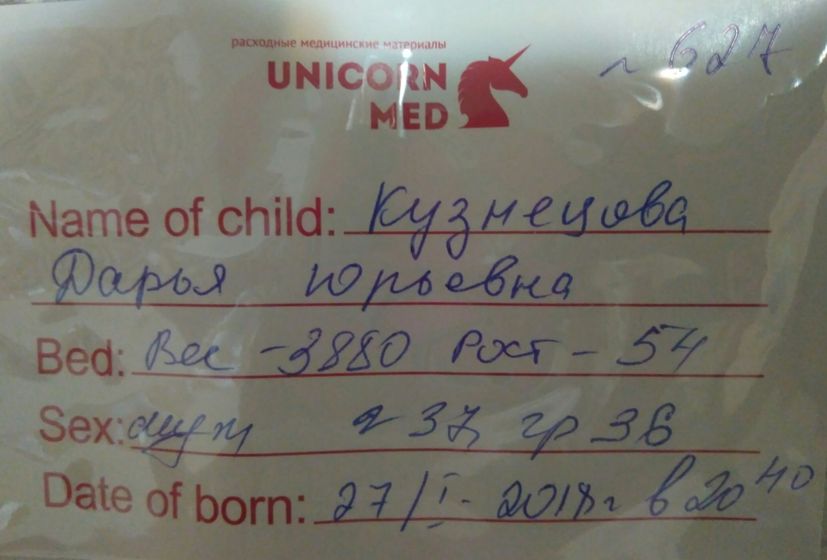 расходные медицинские материалы
UNICORN
MED
~ 627
Name of child: Кузнецова
Дарья Юрьевна
Bed: Вес - 3880 Рост - 54
Sex: муж г 37, гр 36
Date of born: 27/I- 2018г в 20 40